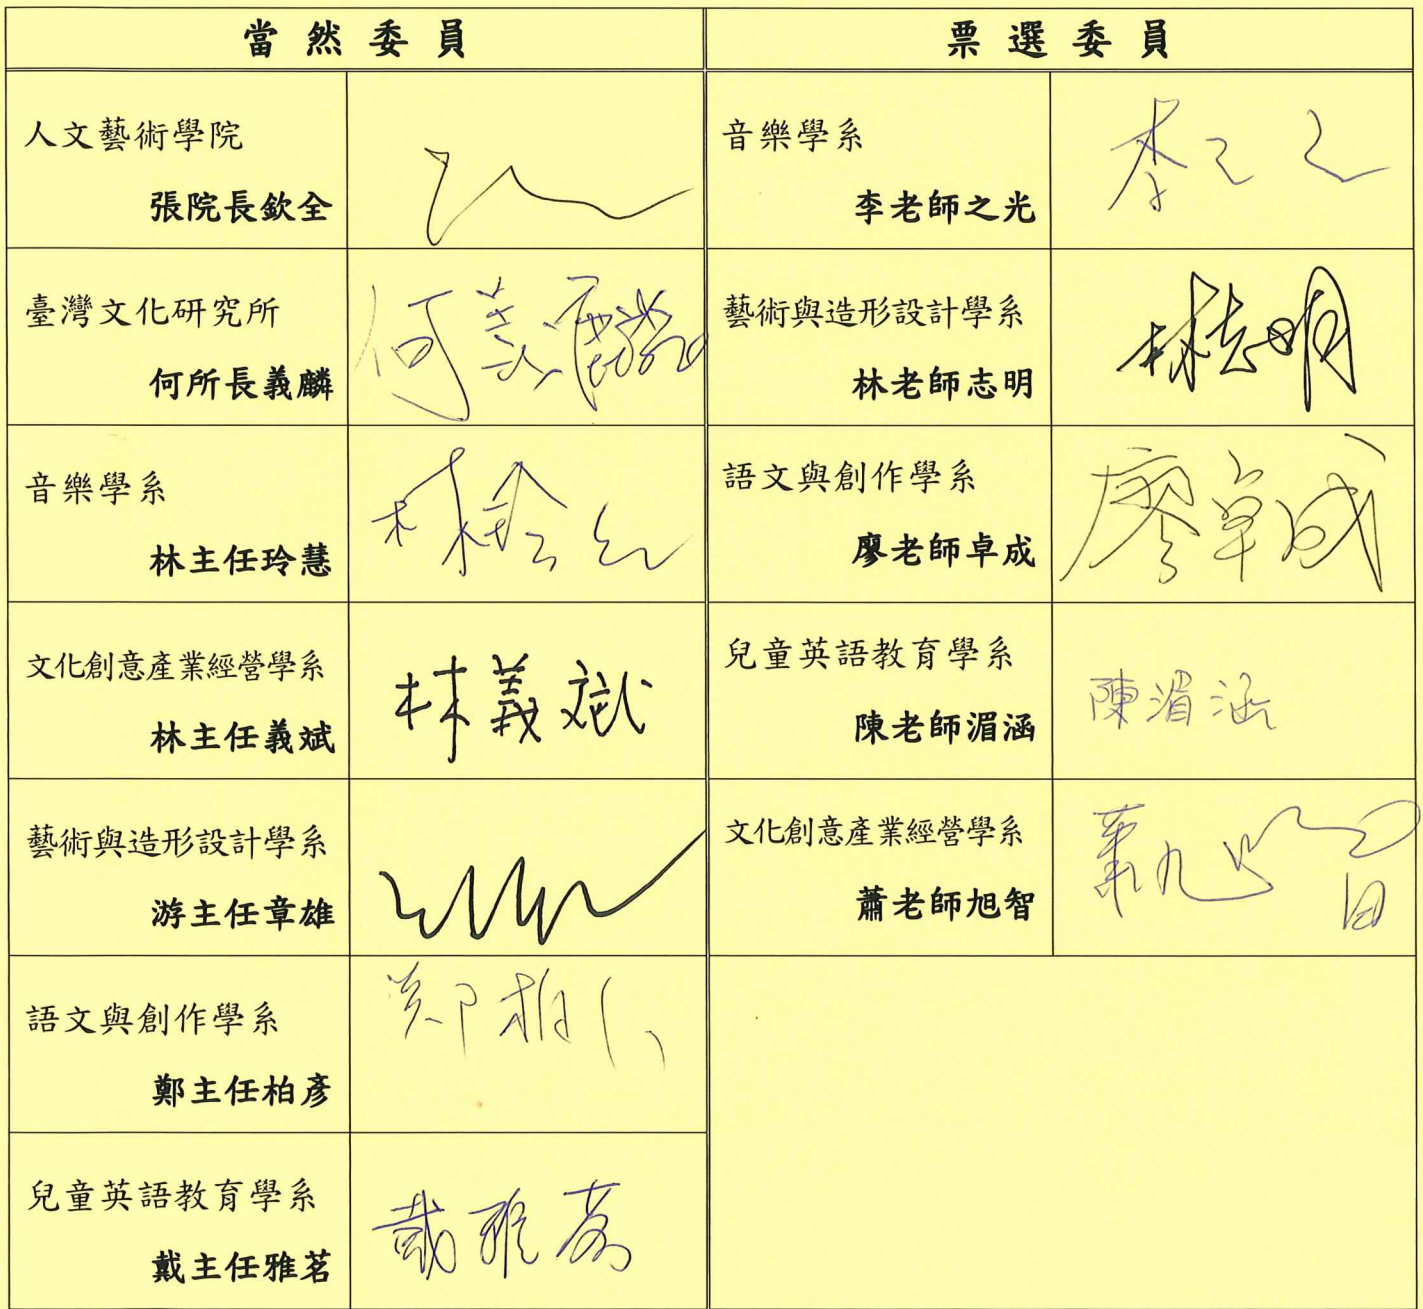 當然委員
票選委員
人文藝術學院
張院長欽全
音樂學系
李老師之光
李
臺灣文化研究所
何所長義麟
何義麟
藝術與造形設計學系
林老師志明
林志明
音樂學系
林主任玲慧
林玲
語文與創作學系
廖老師卓成
廖卓成
文化創意產業經營學系
林主任義斌
林義斌
兒童英語教育學系
陳老師湄涵
陳湄涵
藝術與造形設計學系
游主任章雄
文化創意產業經營學系
蕭老師旭智
蕭旭智
語文與創作學系
鄭主任柏彥
鄭柏
兒童英語教育學系
戴主任雅茗
戴雅茗